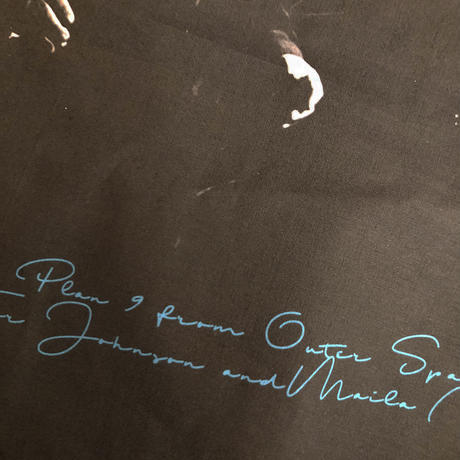 Plan 9 from Outer Spa
r Johnson and Maila